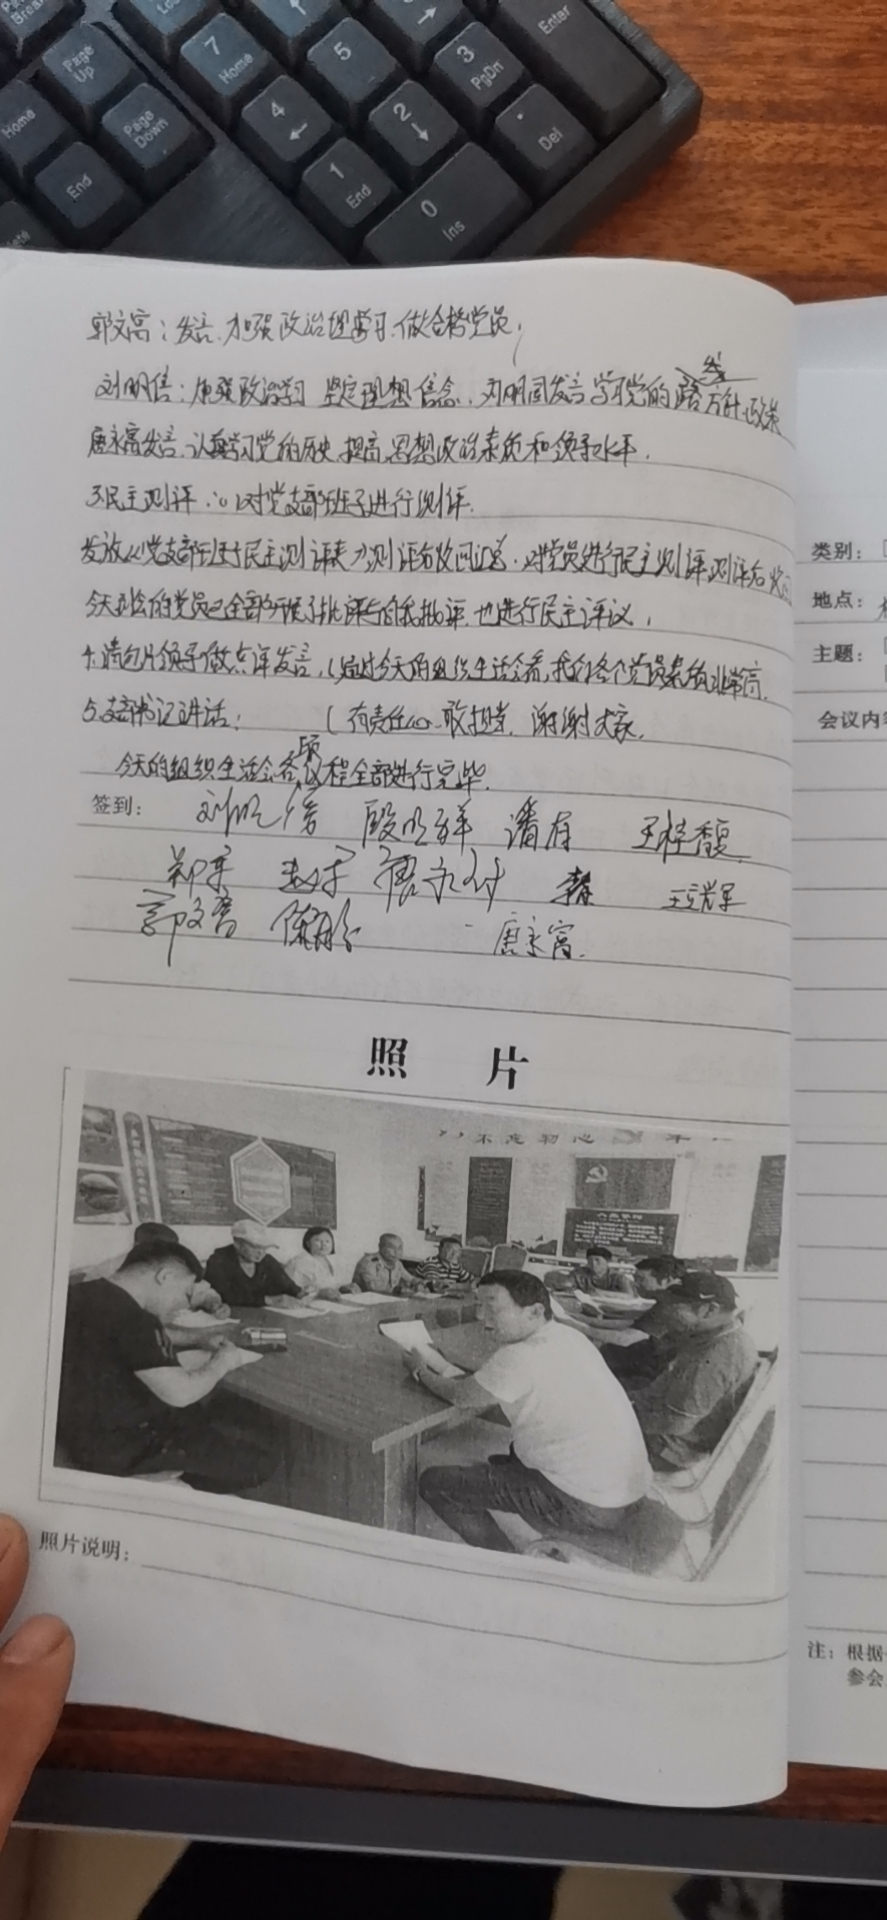 Page Up
Home
Page Down
End
7 Home
5
3 PgDn
Enter
4
2
1 End
0 Ins
Del
郭文富：发言，加强政治理学习，做合格党员，
刘明信：加强政治学习 坚定理想信念，刘明国发言 学习党的路线方针政策
唐永富发言，认真学习党的历史，提高思想政治素质和领导水平，
3.民主测评：(1)对党支部班子进行测评，
发放《党支部班子民主测评表》测评后收回汇总，对党员进行民主测评测评后收
今天到会的党员已全部开展了批评与自我批评，也进行民主评议，
4.请包片领导做点评发言，(通过今天的组织生活会看，我们各个党员素质非常高，
5.支部书记讲话： (有责任心、敢担当，谢谢大家，
今天的组织生活会各项议程全部进行完毕，
签到： 刘明信 殷明祥 潘有 王梓馥
唐永付 王立军
郭文富 唐永富
照 片
照片说明：
类别：
地点：
主题：
会议内容
注：根据
参会